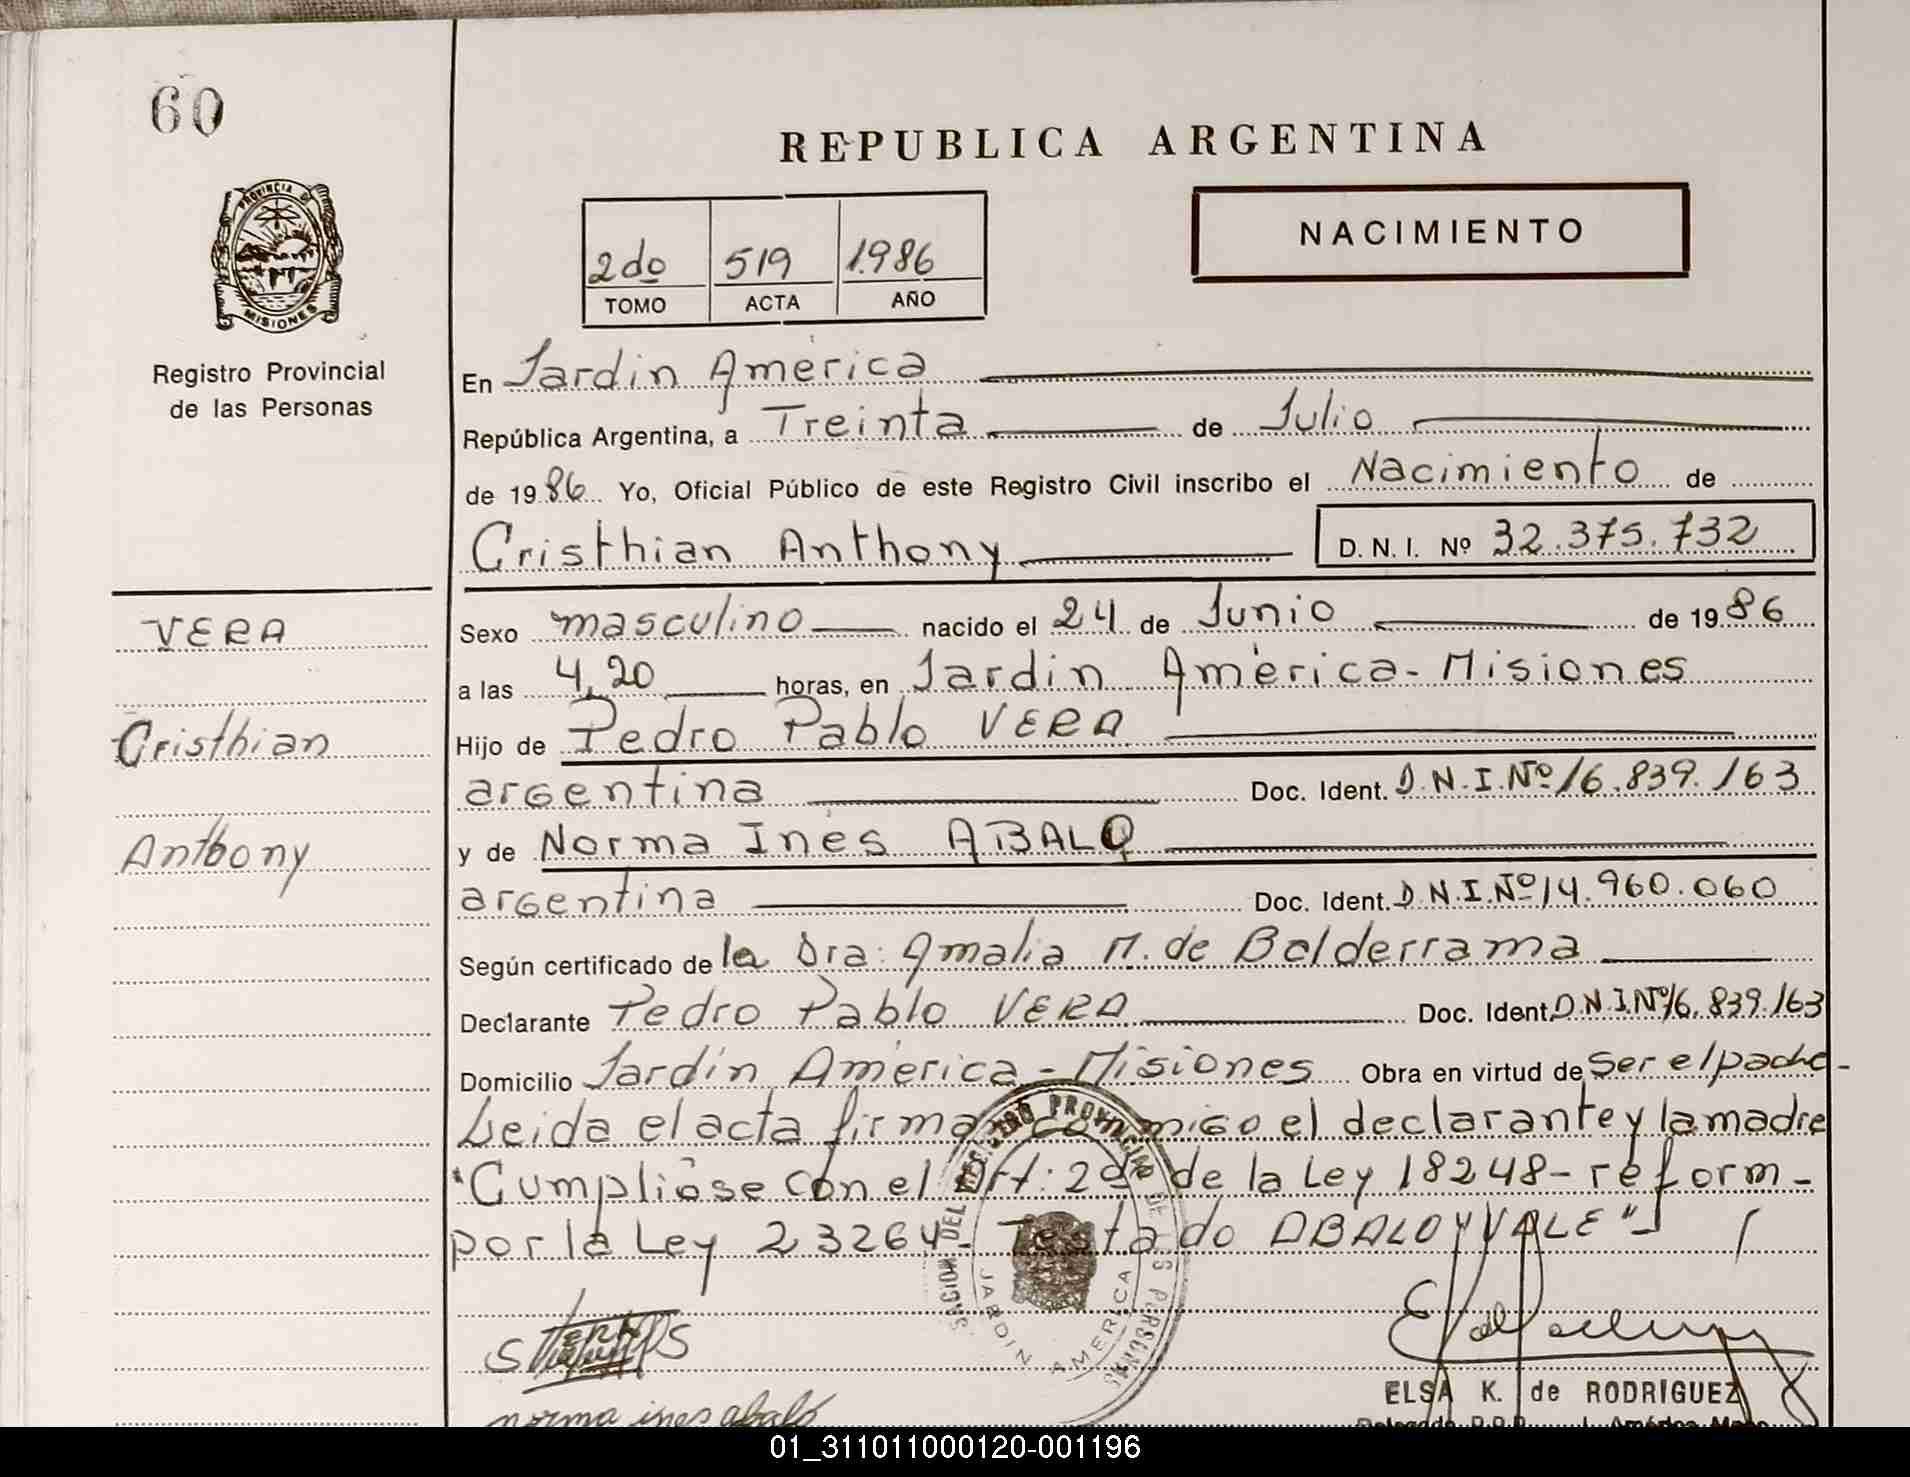 60
REPUBLICA ARGENTINA
PROVINCIA DE
MISIONES
Registro Provincial
de las Personas
2do 519 1.986
TOMO ACTA AÑO
NACIMIENTO
En Jardin América
República Argentina, a Treinta de Julio
de 1986 Yo, Oficial Público de este Registro Civil inscribo el Nacimiento de
Cristhian Anthony D. N. I. Nº 32.375.732
VERA
Cristhian
Anthony
Sexo masculino nacido el 24 de Junio de 1986
a las 4,20 horas, en Jardin América - Misiones
Hijo de Pedro Pablo VERA
argentina Doc. Ident. D.N.I.Nº 16.839.163
y de Norma Inés ABALO
argentina Doc. Ident. D.N.I.Nº 14.960.060
Según certificado de la Dra: Amalia M. de Balderrama
Declarante Pedro Pablo VERA Doc. Ident D.N.I.Nº 16.839.163
Domicilio Jardín América - Misiones Obra en virtud de Ser el padre -
Leida el acta firman conmigo el declarante y la madre
"Cumplióse con el Art: 2do de la Ley 18248 - reform -
por la Ley 23264 - Testado ABALO, VALE"
REGISTRO PROVINCIAL DE LAS PERSONAS
JARDIN AMERICA
norma ines abalo
ELSA K. de RODRIGUEZ
01_311011000120-001196